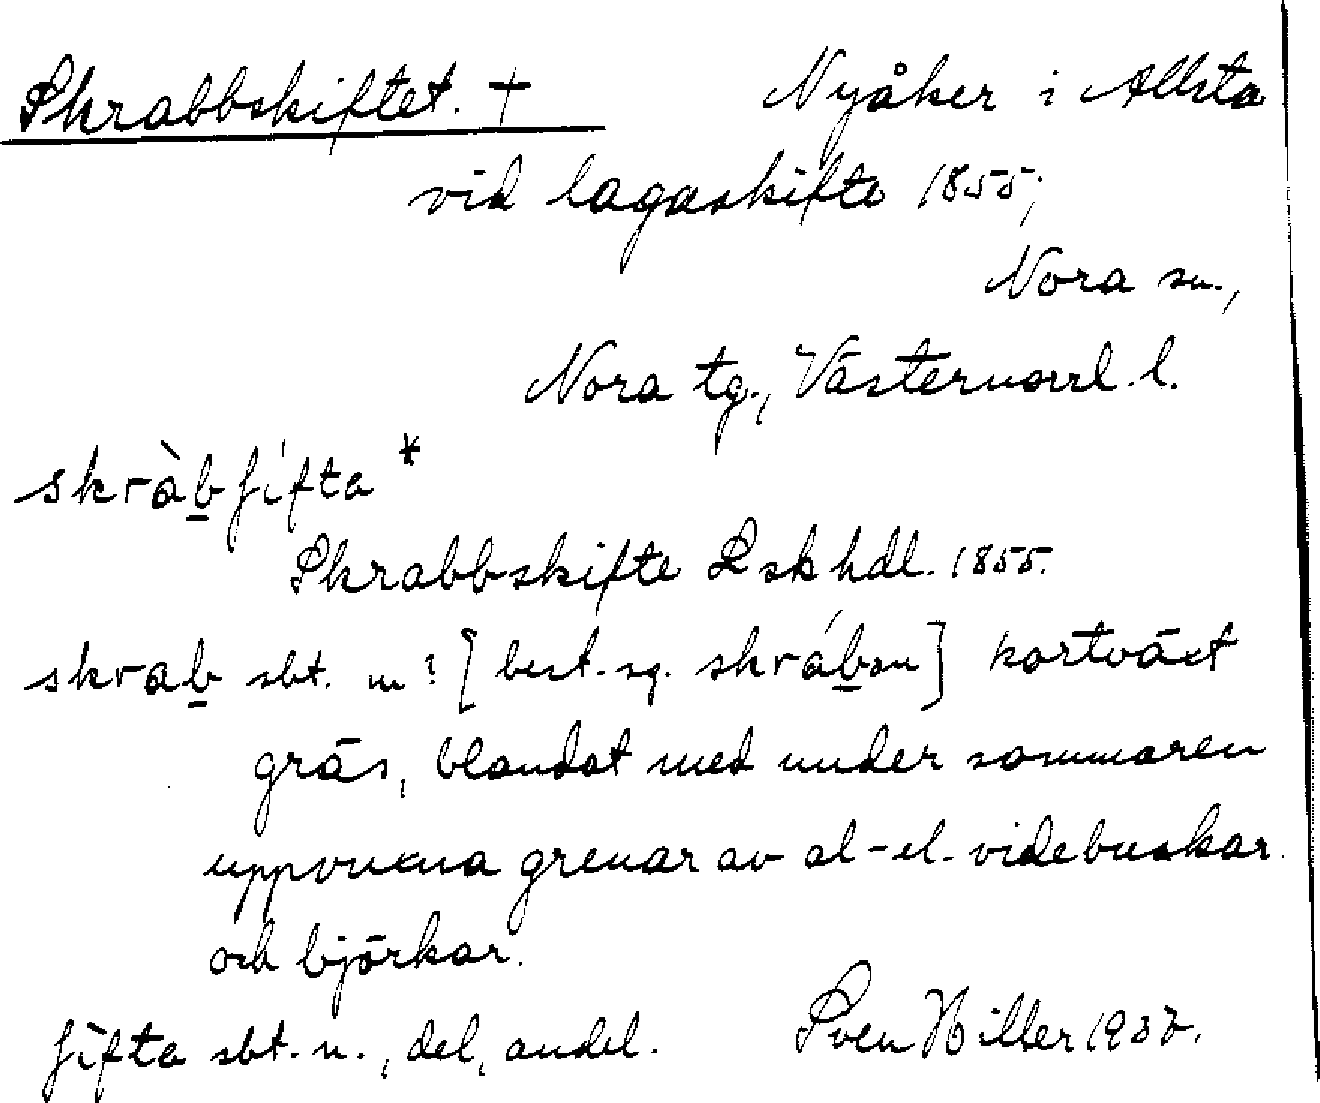 Skrabbskiftet. + Nyåker i Allsta
vid lagaskifte 1855;
Nora sn.,
Nora tg., Västernorrl. l.
skràbʃifta *
Skrabbskifte Lskhdl. 1855.
skrab sbt. m? [best. sg. skrában] kortväxt
gräs, blandat med under sommaren
uppvuxna grenar av al- el. videbuskar
och björkar.
ʃifta sbt. n., del, andel. Sven Hiller